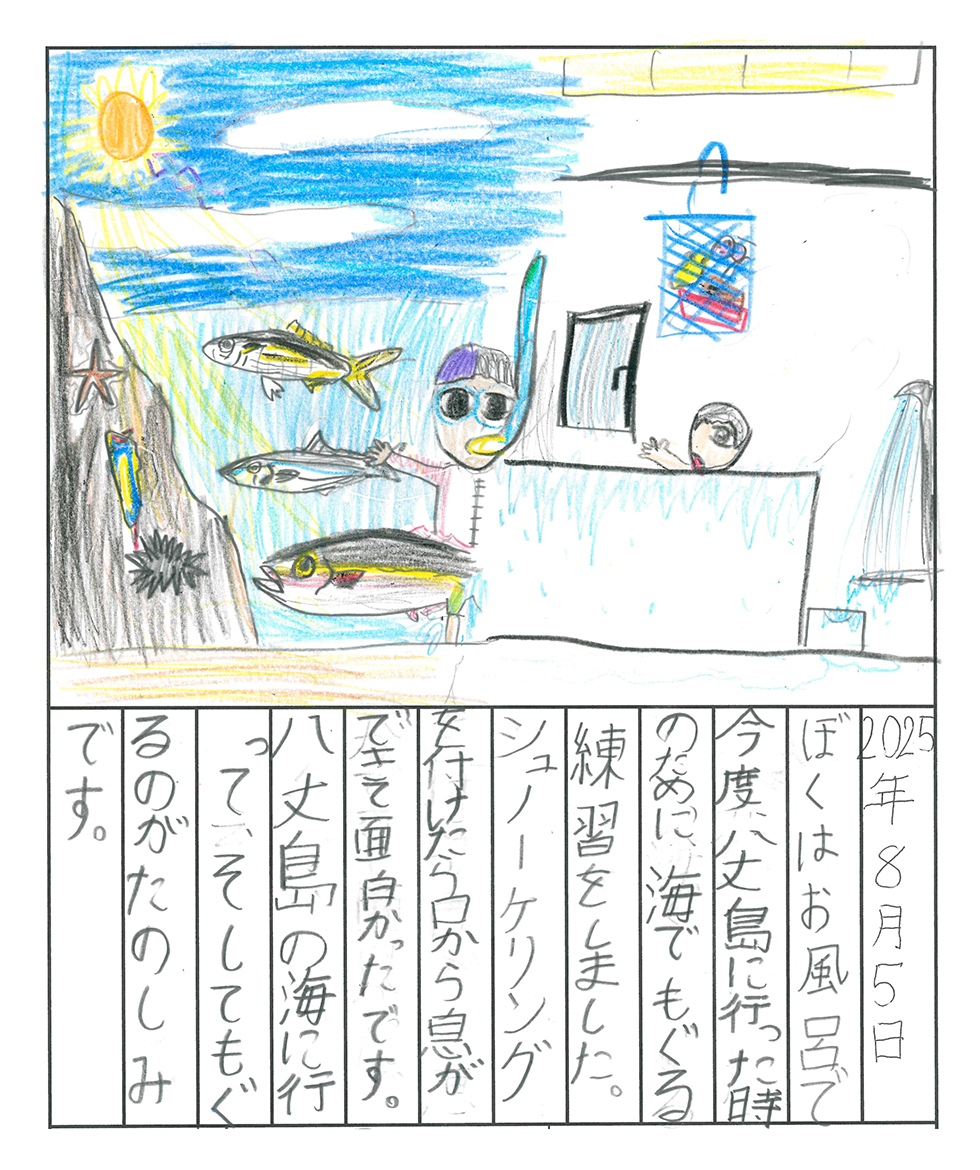 2025年8月5日
ぼくはお風呂で
今度八丈島に行った時
のために、海でもぐる
練習をしました。
シュノーケリング
を付けたら口から息が
できそ面白かったです。
八丈島の海に行
って、そしてもぐ
るのがたのしみ
です。